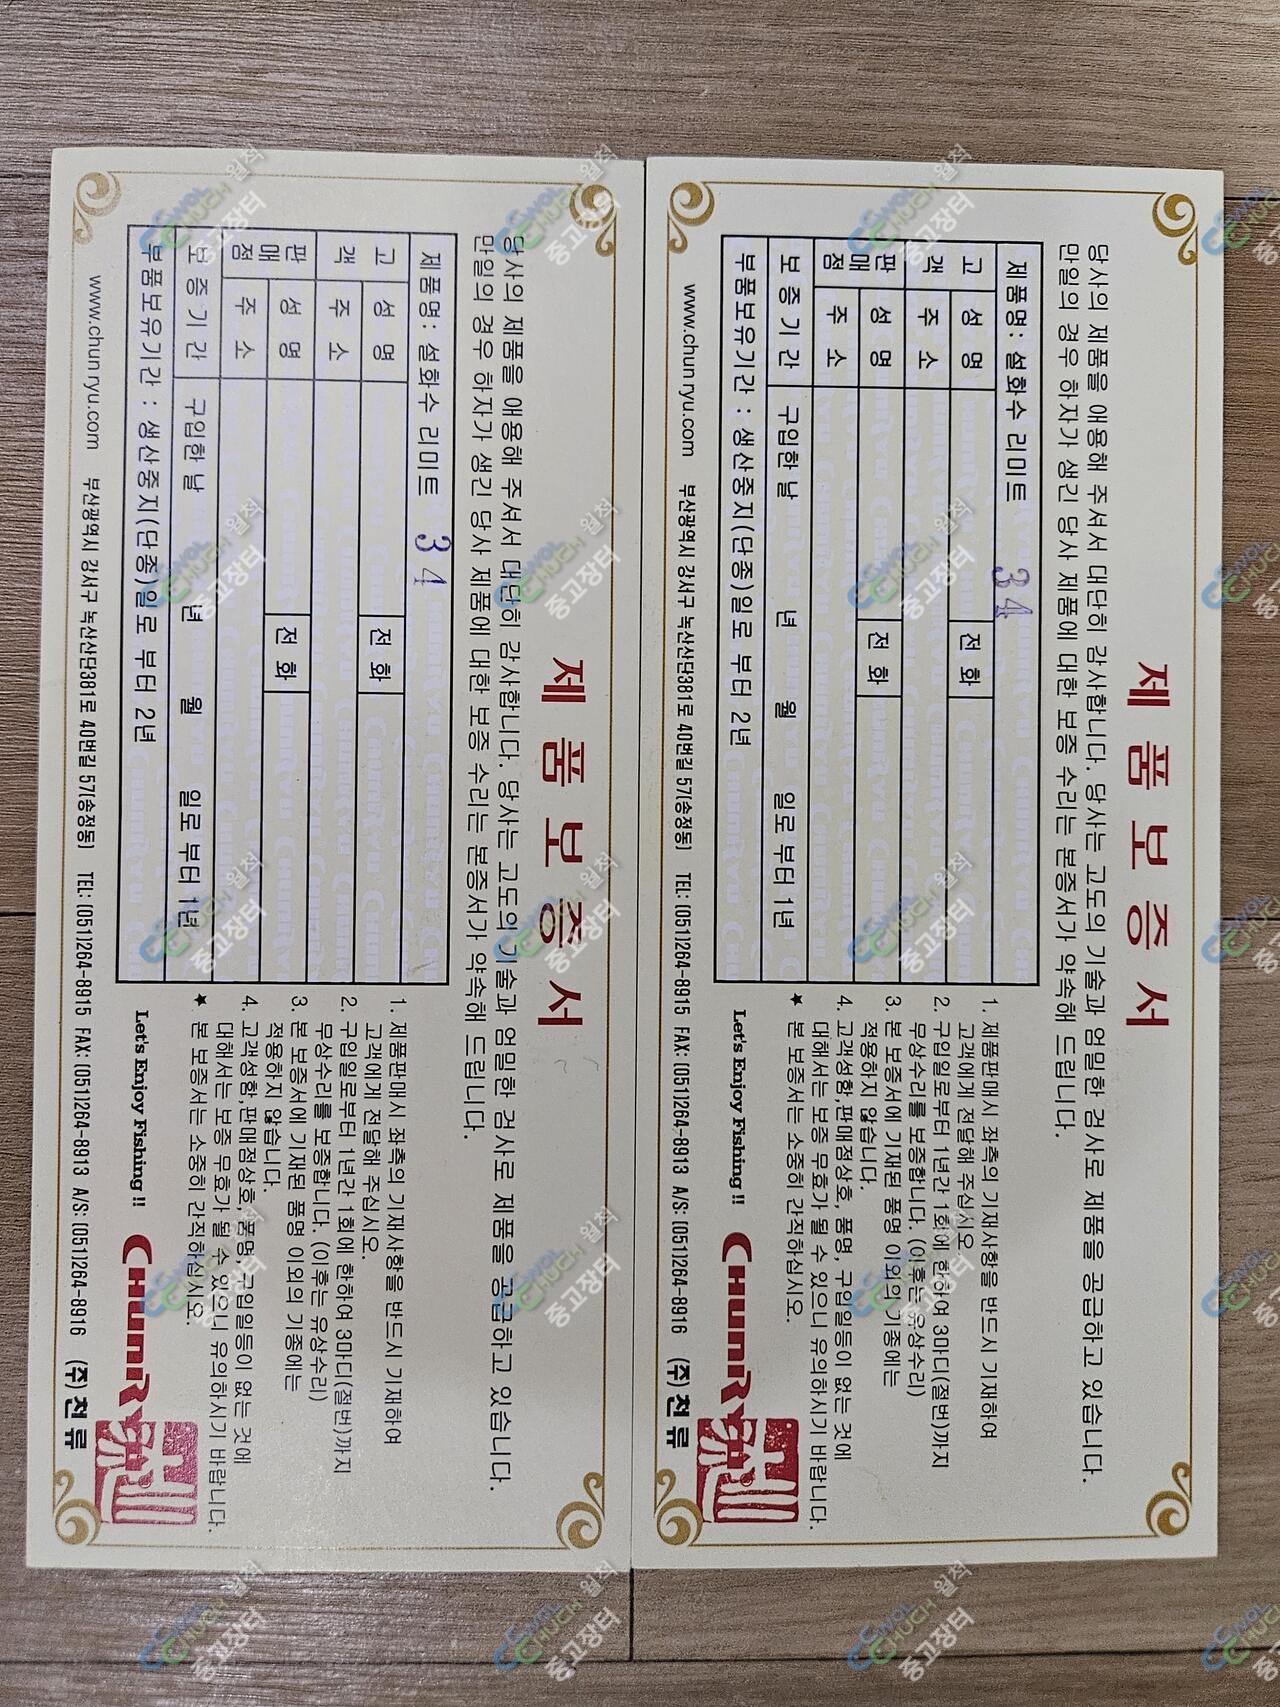 제품보증서
당사의 제품을 애용해 주셔서 대단히 감사합니다. 당사는 고도의 기술과 엄밀한 검사로 제품을 공급하고 있습니다.
만일의 경우 하자가 생긴 당사 제품에 대한 보증 수리는 본증서가 약속해 드립니다.
제품명: 설화수 리미트 34
고객 성명 전화
주소
판매점 성명 전화
주소
보증기간 구입한 날 년 월 일로 부터 1년
부품보유기간 : 생산중지(단종)일로 부터 2년
1. 제품판매시 좌측의 기재사항을 반드시 기재하여
고객에게 전달해 주십시오.
2. 구입일로부터 1년간 1회에 한하여 3마디(절번)까지
무상수리를 보증합니다. (이후는 유상수리)
3. 본 보증서에 기재된 품명 이외의 기종에는
적용하지 않습니다.
4. 고객성함,판매점상호, 품명, 구입일등이 없는 것에
대해서는 보증 무효가 될 수 있으니 유의하시기 바랍니다.
★ 본 보증서는 소중히 간직하십시오.
Let's Enjoy Fishing !! CHUNRYU
www.chunryu.com 부산광역시 강서구 녹산산단381로 40번길 57(송정동) TEL: (051)264-8915 FAX: (051)264-8913 A/S: (051)264-8916 (주) 천류
제품보증서
당사의 제품을 애용해 주셔서 대단히 감사합니다. 당사는 고도의 기술과 엄밀한 검사로 제품을 공급하고 있습니다.
만일의 경우 하자가 생긴 당사 제품에 대한 보증 수리는 본증서가 약속해 드립니다.
제품명: 설화수 리미트 34
고객 성명 전화
주소
판매점 성명 전화
주소
보증기간 구입한 날 년 월 일로 부터 1년
부품보유기간 : 생산중지(단종)일로 부터 2년
1. 제품판매시 좌측의 기재사항을 반드시 기재하여
고객에게 전달해 주십시오.
2. 구입일로부터 1년간 1회에 한하여 3마디(절번)까지
무상수리를 보증합니다. (이후는 유상수리)
3. 본 보증서에 기재된 품명 이외의 기종에는
적용하지 않습니다.
4. 고객성함,판매점상호, 품명, 구입일등이 없는 것에
대해서는 보증 무효가 될 수 있으니 유의하시기 바랍니다.
★ 본 보증서는 소중히 간직하십시오.
Let's Enjoy Fishing !! CHUNRYU
www.chunryu.com 부산광역시 강서구 녹산산단381로 40번길 57(송정동) TEL: (051)264-8915 FAX: (051)264-8913 A/S: (051)264-8916 (주) 천류
WOL CHUCK 월척 중고장터